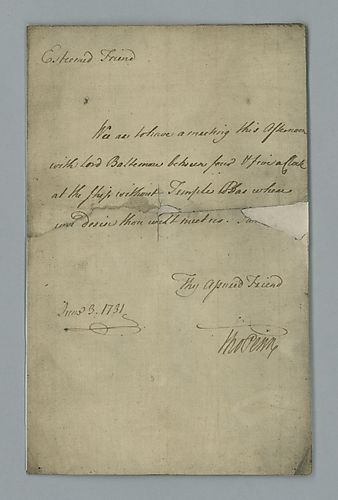 Esteemed Friend
We are to have a meeting this Afternoon
with Lord Baltemore between four & five a Clock
at the Ship without Temple Bar where
we desire thou wilt meet us. I am
Thy Assured Friend
June 3. 1731
Tho Penn